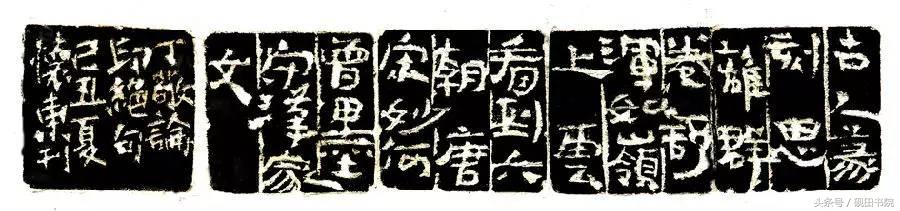 古人篆
刻思
離群
卷舒
渾如嶺
上雲
看到六
朝唐
宋妙何
曾墨
守漢家
文
丁敬論
印絕句
己丑夏
懷東刊
头条号 / 砚田书院